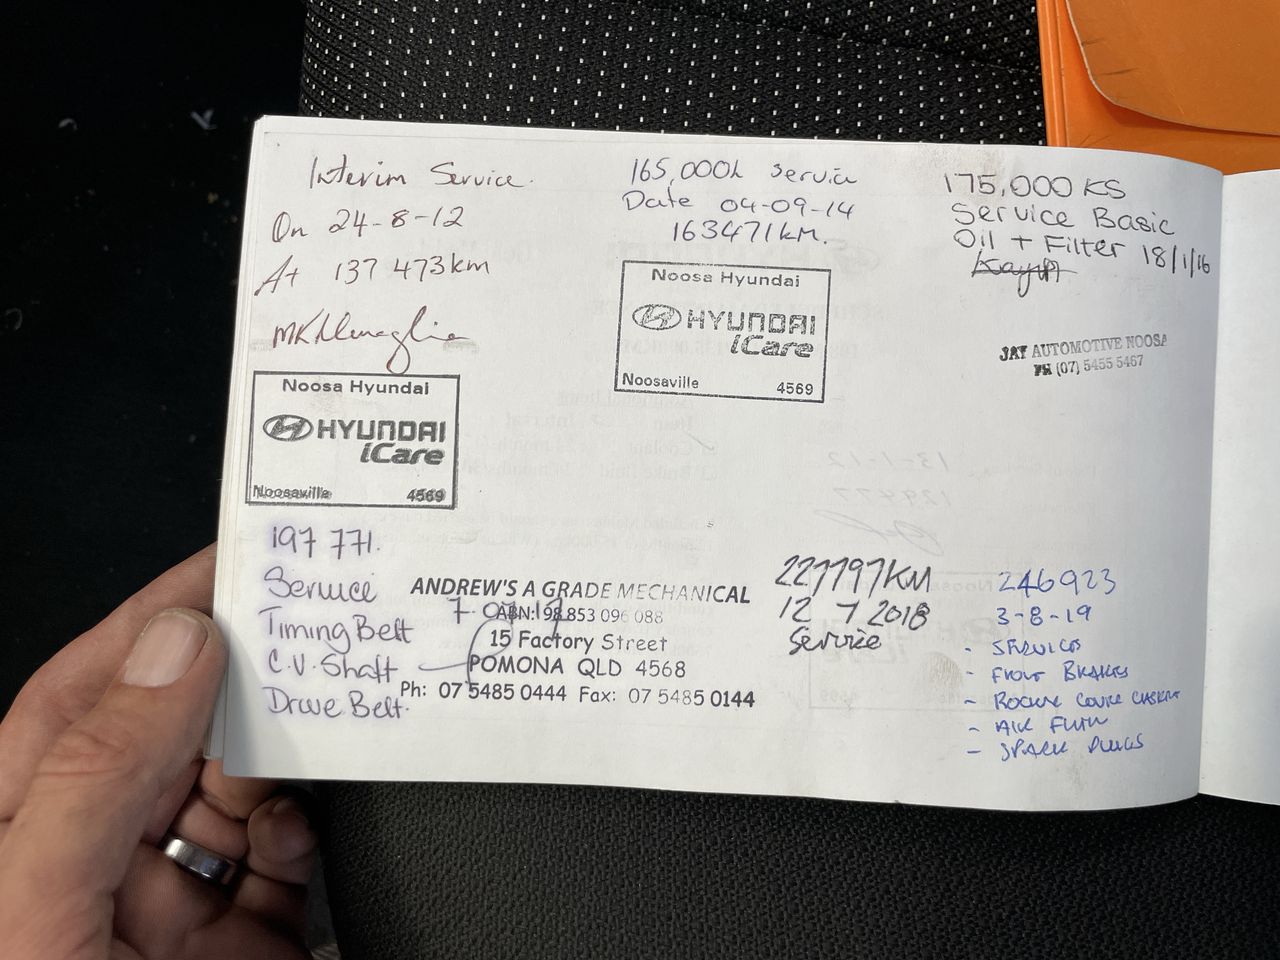 Interim Service.
On 24-8-12
At 137 473km
Noosa Hyundai
HYUNDAI
iCare
Noosaville 4569
165,000k Service
Date 04-09-14
163471km.
Noosa Hyundai
HYUNDAI
iCare
Noosaville 4569
175,000 KS
Service Basic
Oil + Filter 18/1/16
JAT AUTOMOTIVE NOOSA
PH (07) 5455 5467
197 771.
Service
Timing Belt
C.V. Shaft
Drive Belt.
ANDREW'S A GRADE MECHANICAL
ABN: 98 853 096 088
15 Factory Street
POMONA QLD 4568
Ph: 07 5485 0444 Fax: 07 5485 0144
227797KM
12 7 2018
Service
246923
3-8-19
- SERVICE
- FRONT BRAKES
- ROCKER COVER GASKET
- AIR FILTER
- SPARK PLUGS